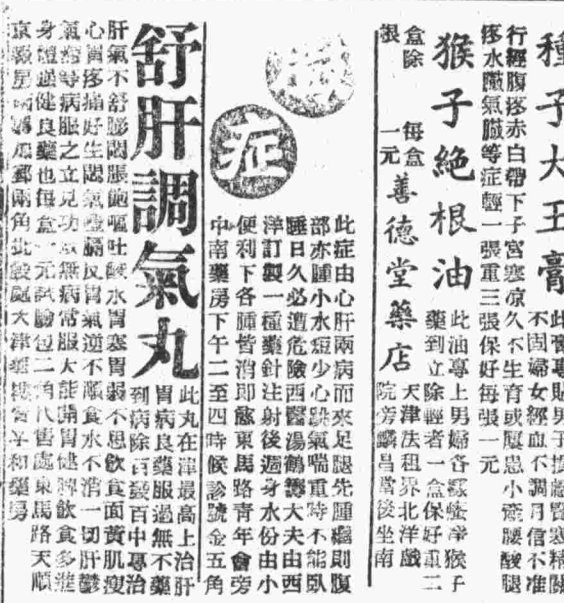 種子大王膏
此膏專貼男子損虧腎寒精關
不固婦女經血不調月信不准
行經腹疼赤白帶下子宮寒凉久不生育或屢患小產腰酸腿
疼水臟氣臟等症輕一張重三張保好每張一元
猴子絶根油
此油專上男婦各猴子
藥到立除輕者一盒保好重二
盒除根
每盒一元
善德堂藥店
天津法租界北洋戲
院旁麟昌當後坐南
症
此症由心肝兩病而來足腿先腫繼則腹
部亦腫小水短少心跳氣喘重時不能臥
睡日久必遭危險西醫湯鶴大夫由西
洋訂製一種藥針注射後週身水份由小
便利下各腫皆消即愈東馬路青年會旁
中南藥房下午二至四時候診號金五角
舒肝調氣丸
此丸在津最高上治肝
胃病良藥服過無不藥
到病除百發百中專治
肝氣不舒膨悶脹飽嘔吐酸水胃寒胃弱不思飲食面黃肌瘦
心胃疼痛好生悶氣噎膈反胃氣逆不順食水不消一切肝鬱
氣疼等病服之立見功效無病常服大能開胃健脾飲食多進
身體強健良藥也每盒一元試驗包二角代售處東馬路天順
京緞房加郵兩角北穀處天津藥和藥房